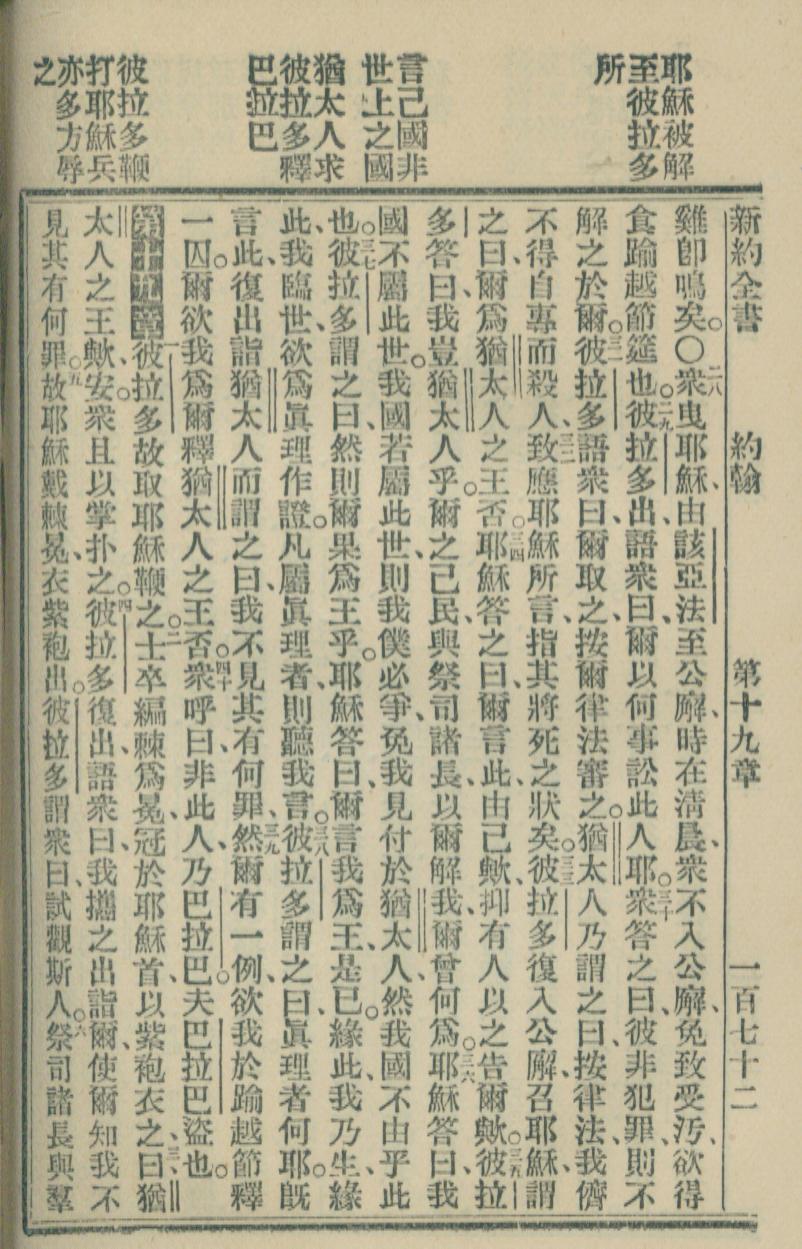 耶穌被解
至彼拉多
所
言己國非
世上之國
猶太人求
彼拉多釋
巴拉巴
彼拉多鞭
打耶穌兵
亦多方辱
之
新約全書 約翰 第十九章 一百七十二
雞卽鳴矣。〇二八衆曳耶穌、由該亞法至公廨、時在淸晨、衆不入公廨、免致受汚、欲得
食踰越節筵也。二九彼拉多出、語衆曰、爾以何事訟此人耶。三十衆答之曰、彼非犯罪、則不
解之於爾。三一彼拉多語衆曰、爾取之、按爾律法審之。猶太人乃謂之曰、按律法、我儕
不得自專而殺人、三二致應耶穌所言、指其將死之狀矣。三三彼拉多復入公廨、召耶穌、謂
之曰、爾爲猶太人之王否。三四耶穌答之曰、爾言此、由己歟、抑有人以之告爾歟。三五彼拉
多答曰、我豈猶太人乎。爾之己民、與祭司諸長、以爾解我、爾曾何爲。三六耶穌答曰、我
國不屬此世。我國若屬此世、則我僕必爭、免我見付於猶太人、然我國不由乎此
也。三七彼拉多謂之曰、然則爾果爲王乎。耶穌答曰、爾言我爲王、是已。緣此、我乃生、緣
此、我臨世、欲爲眞理作證。凡屬眞理者、則聽我言。三八彼拉多謂之曰、眞理者何耶。旣
言此、復出詣猶太人而謂之曰、我不見其有何罪、三九然爾有一例、欲我於踰越節釋
一囚。爾欲我爲爾釋猶太人之王否。四十衆呼曰、非此人、乃巴拉巴。夫巴拉巴盜也。
第十九章一彼拉多故取耶穌鞭之。二士卒編棘爲冕、冠於耶穌首、以紫袍衣之、三曰、猶
太人之王歟、安。衆且以掌扑之。四彼拉多復出、語衆曰、我攜之出詣爾、使爾知我不
見其有何罪。五故耶穌戴棘冕、衣紫袍出。彼拉多謂衆曰、試觀斯人。六祭司諸長與羣